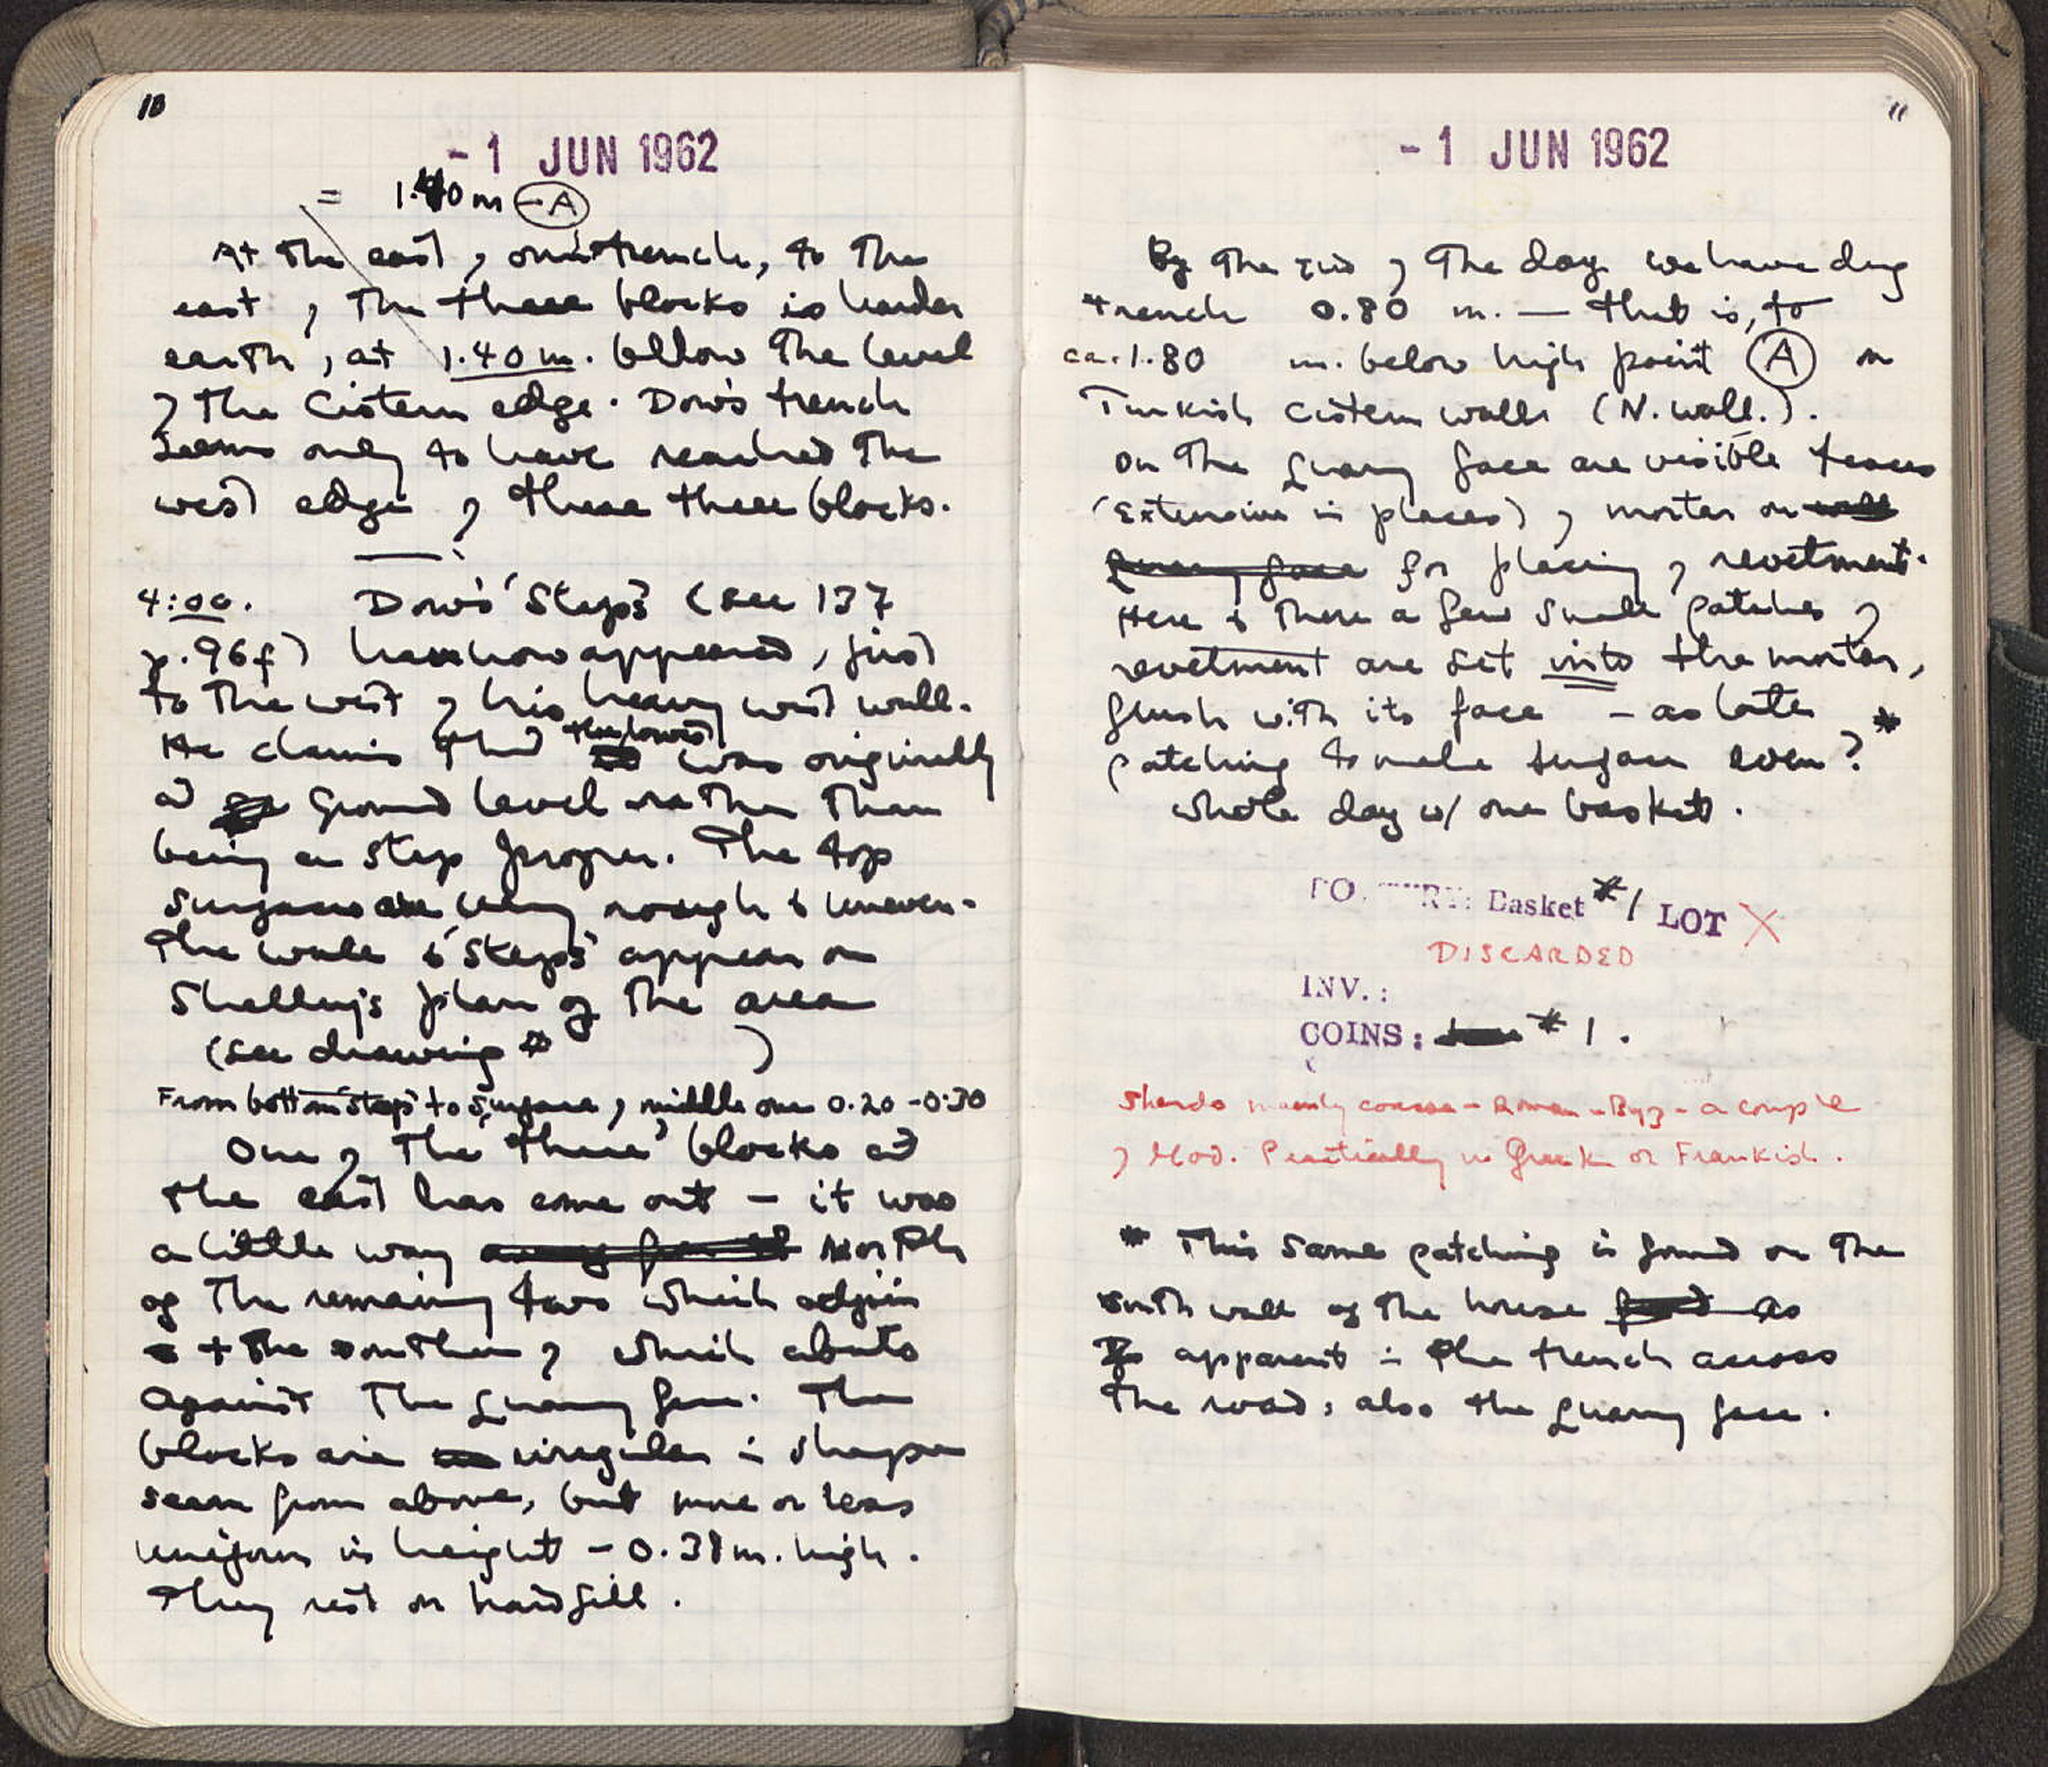 10
- 1 JUN 1962
= 1.40 m -A
At the east of our trench, to the
east of the three blocks is harder
earth, at 1.40 m. bllow the level
of the Cistern edge. Dow's trench
seems only to have reached the
west edge of these three blocks.
4:00. Dow's 'Steps' (see 137
p. 96f) have now appeared, just
to the west of his heavy west wall.
He claims that the lowest was originally
at ground level rather than
being a step proper. The top
surfaces are very rough & uneven.
The wall & 'steps' appear on
Shelley's plan of the area
(see drawing * )
From bottom 'step' to surface of middle one 0.20 - 0.30
One of the 'three' blocks at
the east has come out - it was
a little way north
of the remaining two which adjoin
+ the southern of which abuts
against the quarry face. The
blocks are irregular in shape
seen from above, but more or less
uniform in height - 0.38 m. high.
They rest on hard fill.
11
- 1 JUN 1962
By the end of the day we have dug
trench 0.80 m. — that is, to
ca. 1.80 m. below high point A on
Turkish cistern walls (N. wall.).
On the quarry face are visible traces
(extensive in places) of mortar on
for placing of revetment.
Here & there a few small patches of
revetment are set into the mortar,
flush with its face - as late *
patching to make surface even?
Whole day w/ one basket.
Basket #1 LOT X
DISCARDED
INV.:
COINS: #1.
Sherds mainly coarse - Roman - Byz - a couple
of Mod. Practically no Greek or Frankish.
* This same patching is found on the
south wall of the house as
apparent in the trench across
the road, also the quarry face.